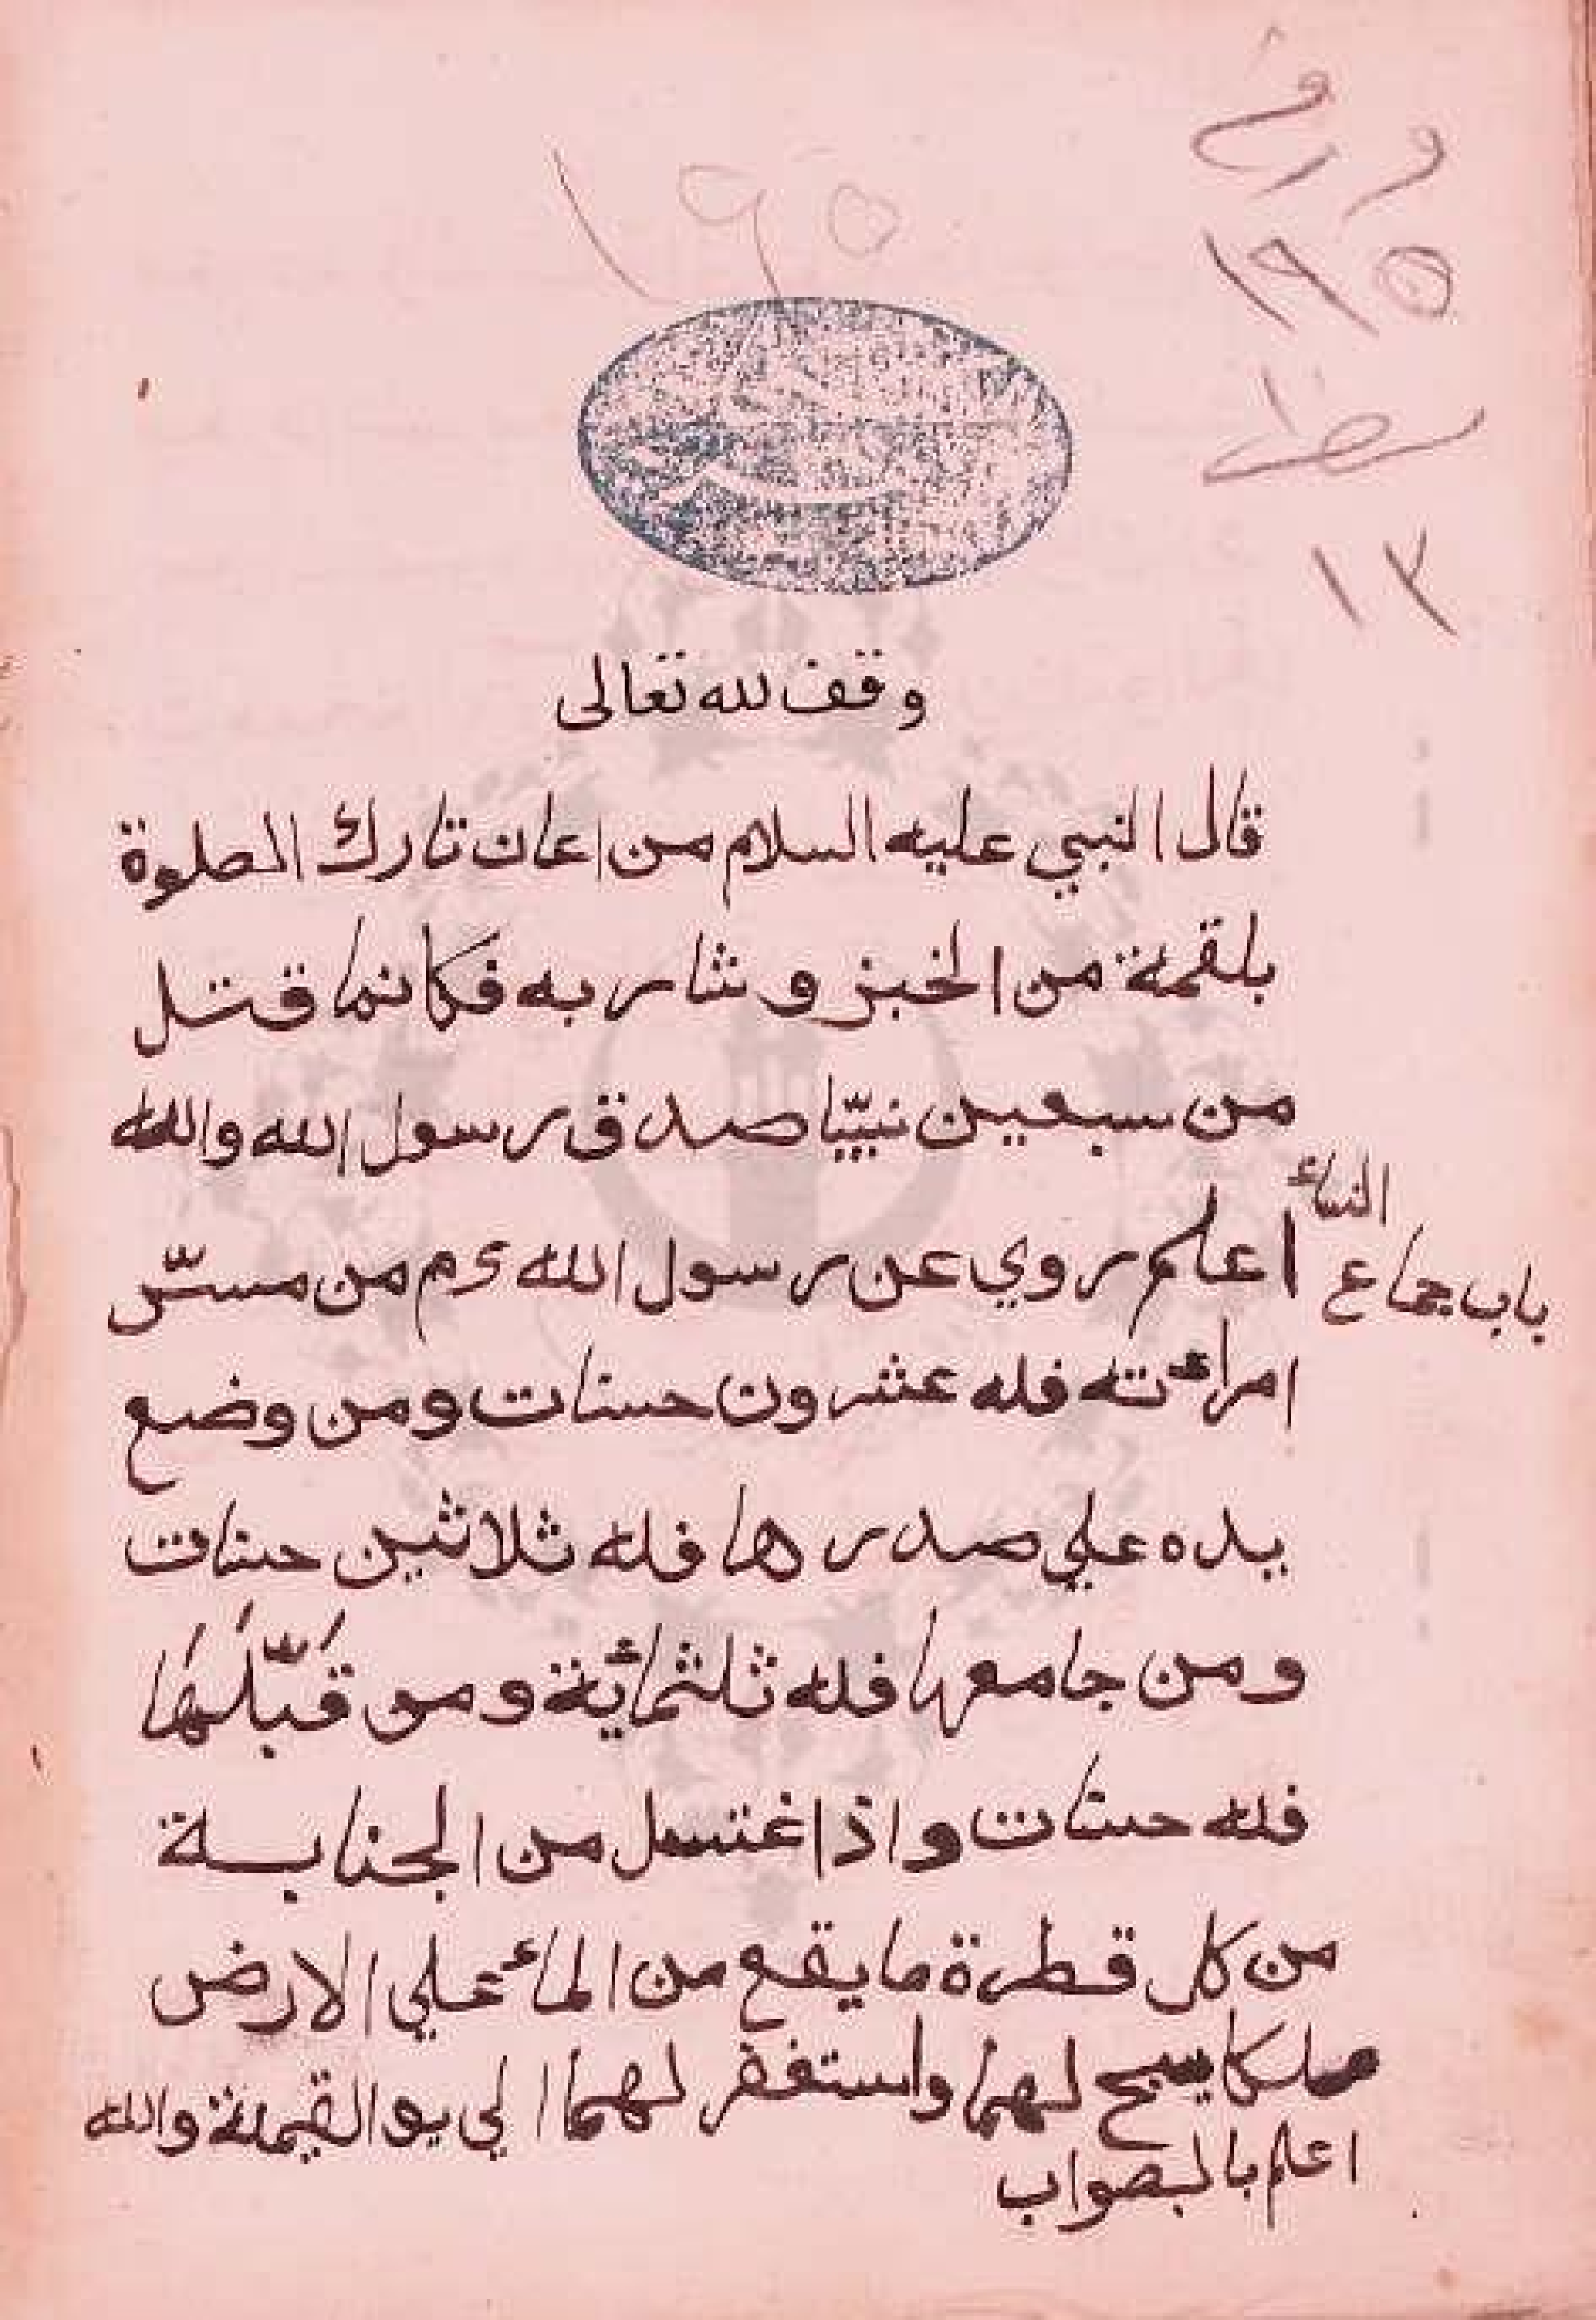 ورق
١٩٥
١٩٥
سطر
١٣
وقف لله تعالى
قال النبي عليه السلام من اعان تارك الصلوة
بلقمة من الخبز وشاربه فكانما قتل
من سبعين نبيّا صدق رسول الله والله
النساء
باب جماع
اعلم روي عن رسول الله ءم من مسّ
امراءته فله عشرون حسنات ومن وضع
يده علي صدرها فله ثلاثين حسنات
ومن جامعها فله ثلثمائة ومن قَبّلَهَا
فله حسنات واذا اغتسل من الجنابة
من كل قطرة ما يقع من الماء علي الارض
ملكا يسبح لهما واستغفر لهما الي يو القيمة والله
اعلم بالصواب